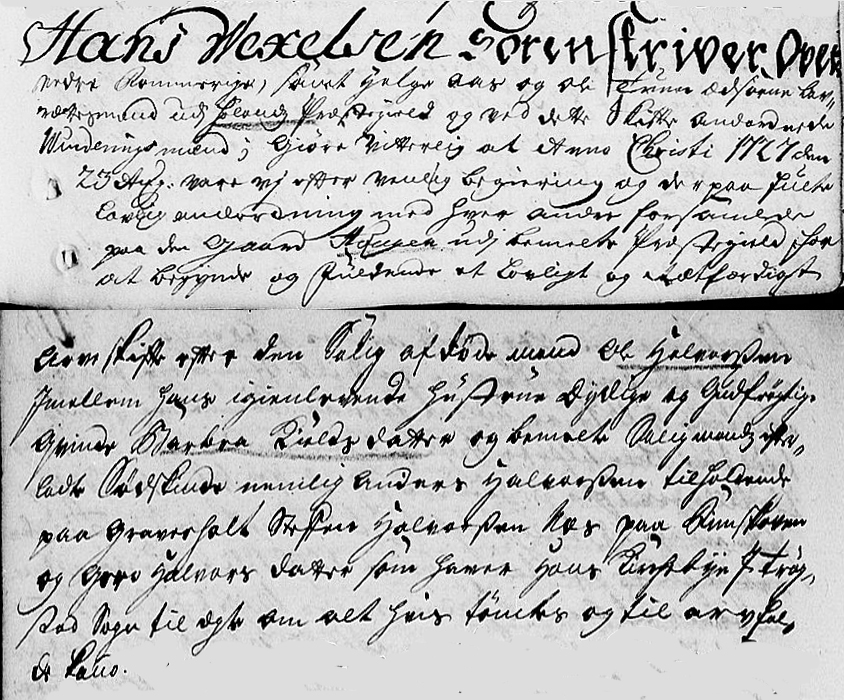 Hans Wexelsen Sorenskriver Over
nedre Rommerige, samt Helge Aas og Ole Tveen Edsorne Lav-
rettesmænd udj Hølands Præstegield og ved dette Skifte anordnede
Wurderings mænd; Giøre Vitterlig at Anno Christi 1727 den
23 Aug: vare vj efter venlig begiering og derpaa fulte
Lovlig anordning med hver andre forsamlede
paa den Gaard Haugen udj bemelte Præstegield for
at begynde og fuldende et Lovligt og Rætfærdigt
Arve skifte efter den Salig afdøde mand Ole Halvorßen
Jmellem hans igienlevende Hustrue Dydige og Gudfrøgtige
Qvinde Barbra Kields datter og bemelte Salig mands efter-
ladte Sødskinde nemlig Anders Halvorßen tilholdende
paa Graverholt Steffen Halvorßen Næs paa
og Goro Halvors datter som haver Hans Kirchebye J Trøg-
stad Sogn til ægte om alt hvis fantes og til arvs fal-
de kand.